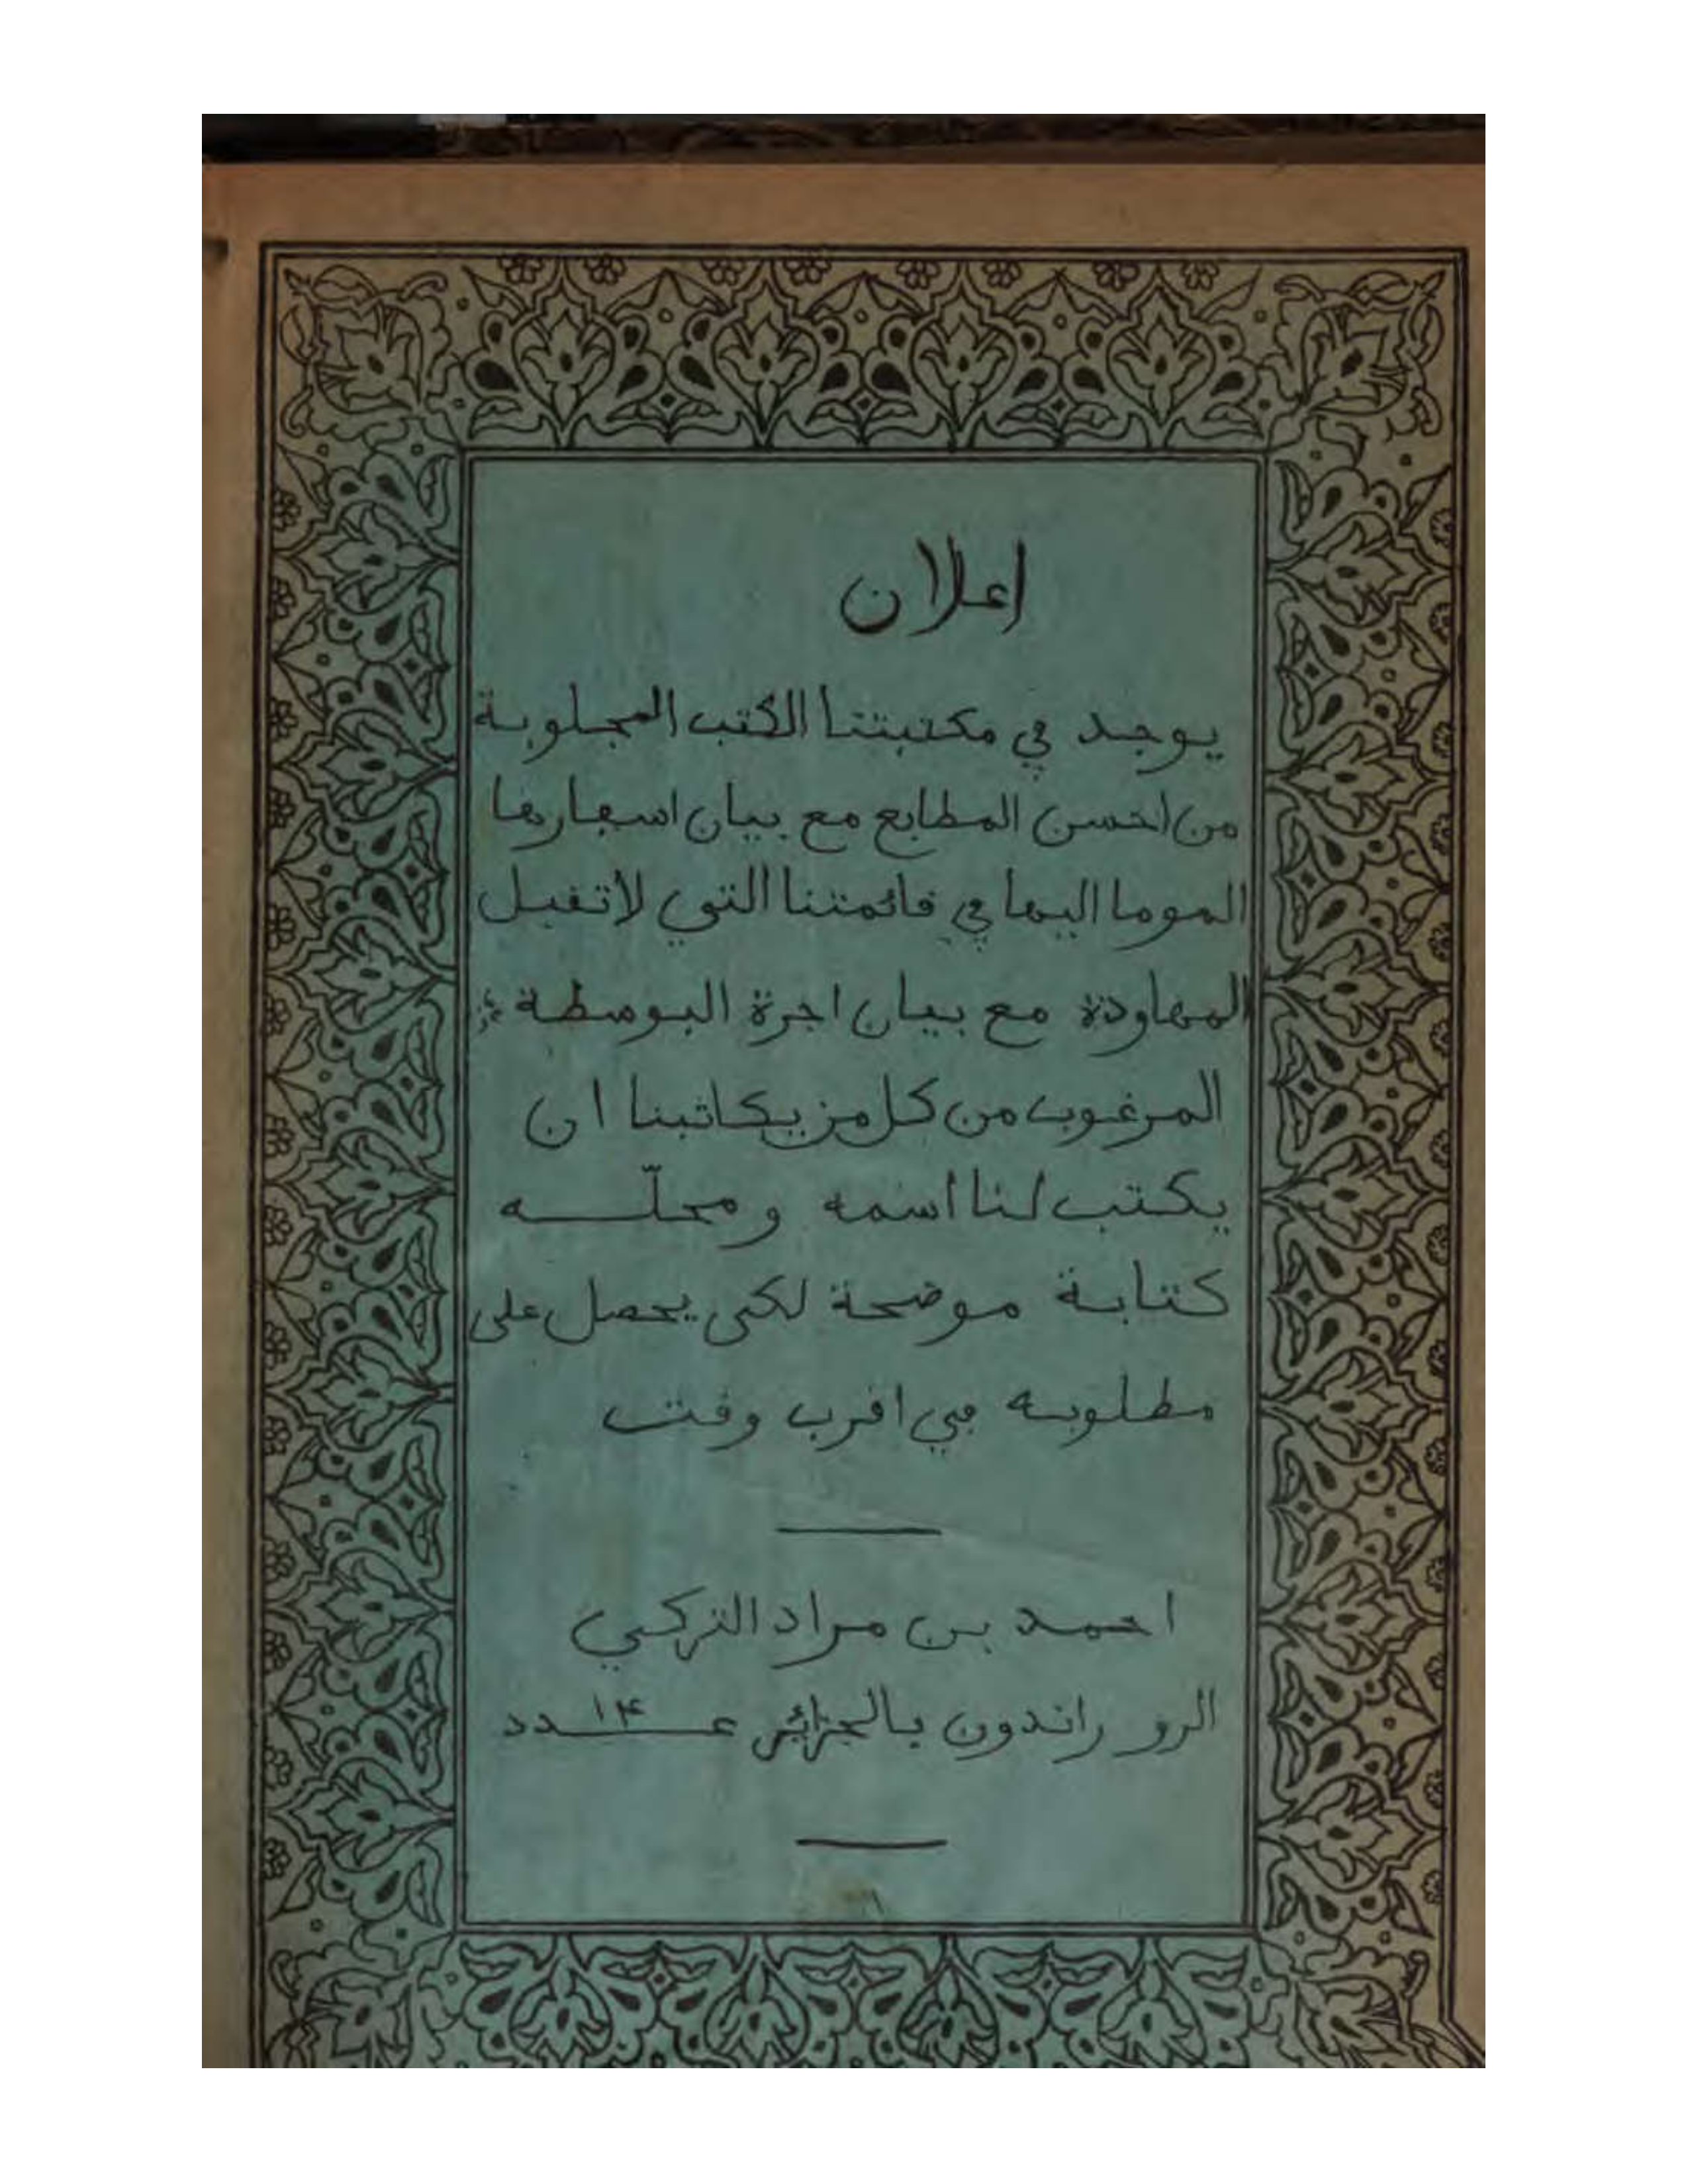 اعلان
يوجد في مكتبتنا الكتب المجلوبة
من احسن المطابع مع بيان اسعارها
الموما اليها في فائمتنا التي لا تفبل
المهاودة مع بيان اجرة البوسطة
المرغوب من كل من يكاتبنا ان
يكتب لنا اسمه ومحلّه
كتابة موضحة لكي يحصل على
مطلوبه في افرب وفت
احمد بن مراد التركي
الرو راندون بالجزائر عدد ١٤